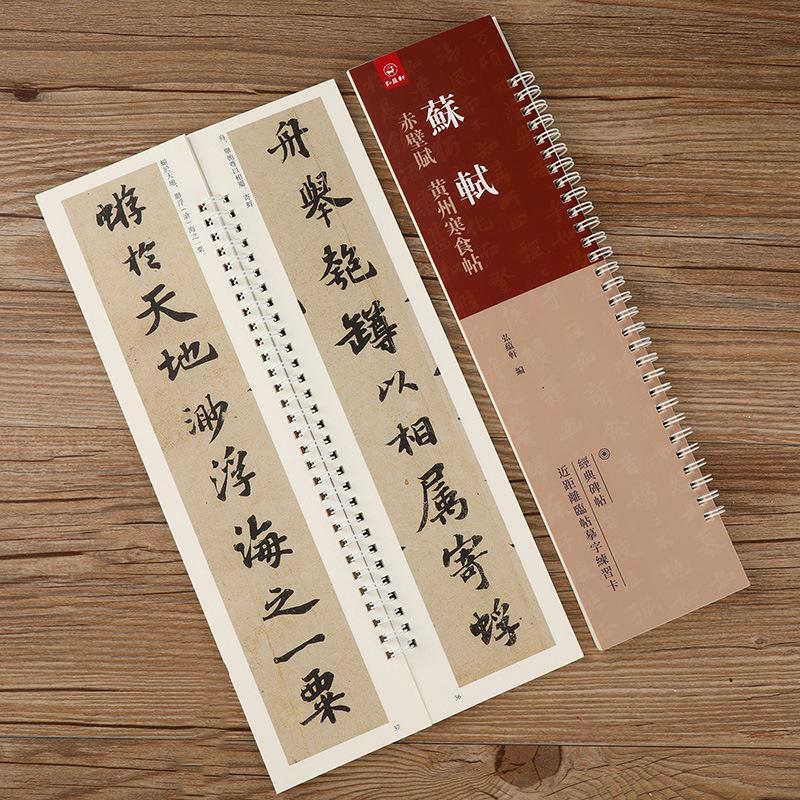 舟舉匏罇以相属寄蜉
舟，舉匏尊以相屬。寄蜉
36
蝣於天地渺浮海之一粟
蝣於天地，渺浮（滄）海之一粟。
37
弘蕴軒
蘇軾
赤壁賦 黄州寒食帖
弘蘊軒 編
經典碑帖
近距離臨帖摹字練習卡